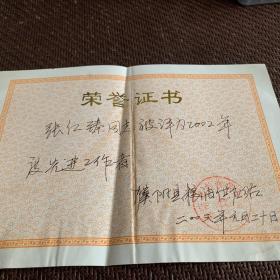 荣誉证书
张仁臻同志被评为2002年
度先进工作者
濮阳县粮油供应站
二〇〇三年元月二十日